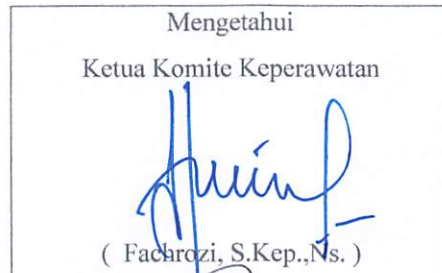 Mengetahui
Ketua Komite Keperawatan
( Fachrozi, S.Kep.,Ns. )